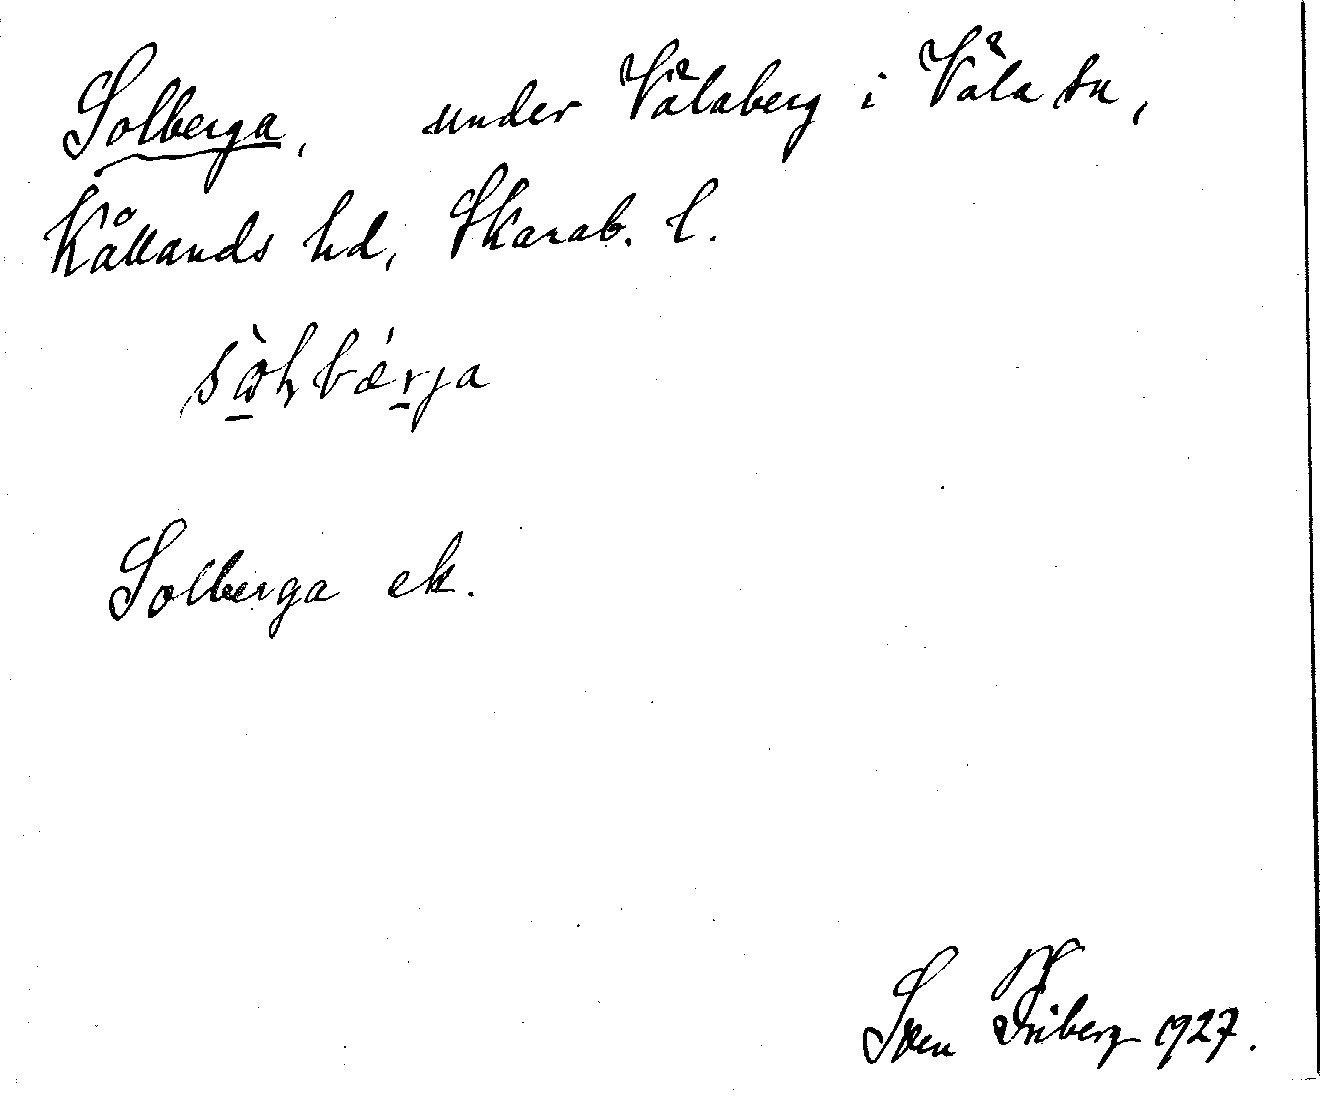 Solberga, under Välaberg i Väla sn,
Kållands hd, Skarab. l.
Solberga ek.
Sven Friberg 1927.